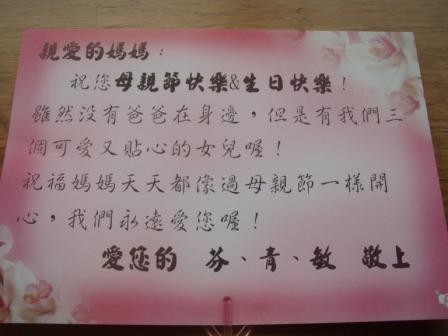 親愛的媽媽：
祝您母親節快樂&生日快樂！
雖然没有爸爸在身邊，但是有我們三
個可愛又貼心的女兒喔！
祝福媽媽天天都像過母親節一樣開
心，我們永遠愛您喔！
愛您的 芬、青、敏 敬上